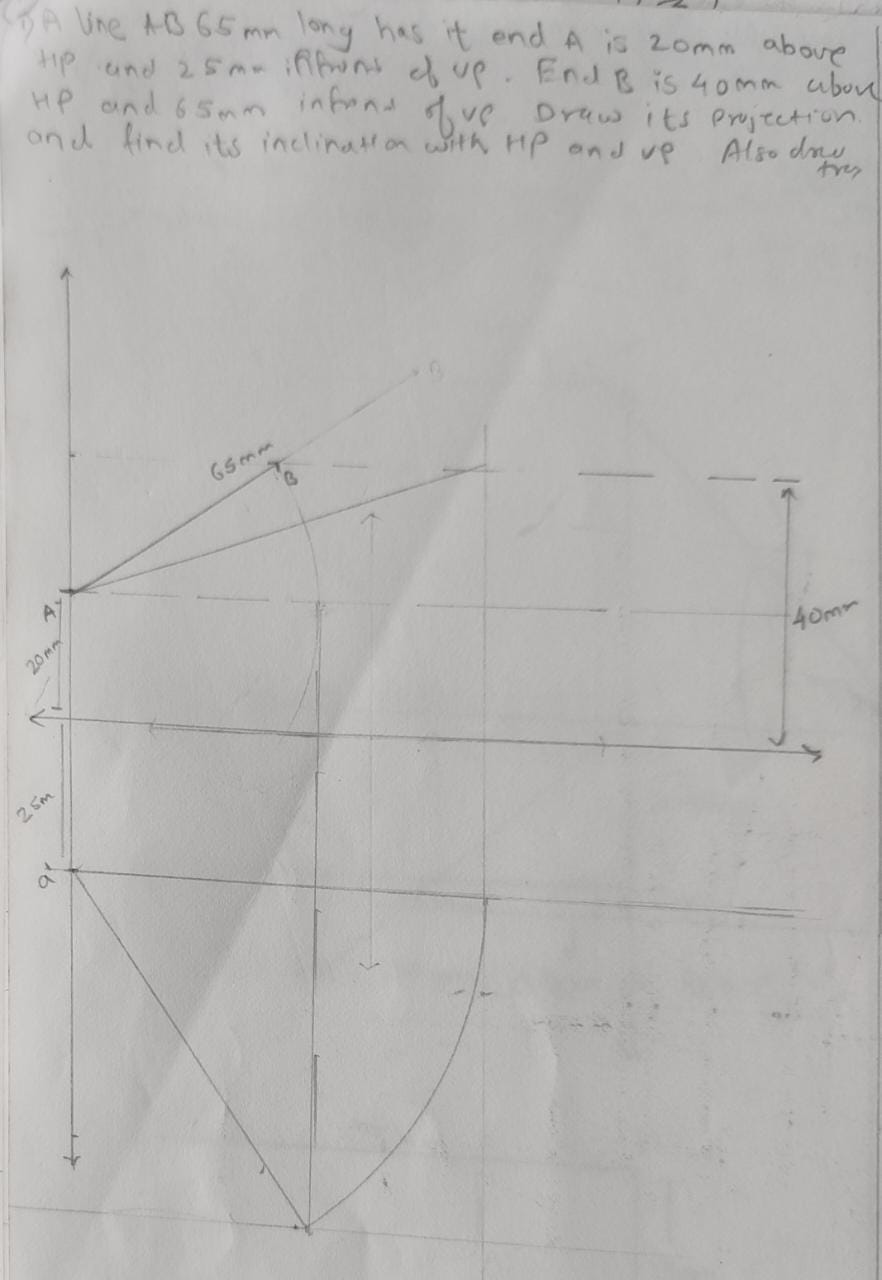 1) A line AB 65mm long has it end A is 20mm above
HP and 25mm infront of VP. End B is 40mm above
HP and 65mm infront of VP Draw its projection.
and find its inclination with HP and VP Also draw
B
65mm
B
A'
20mm
40mm
25m
a'